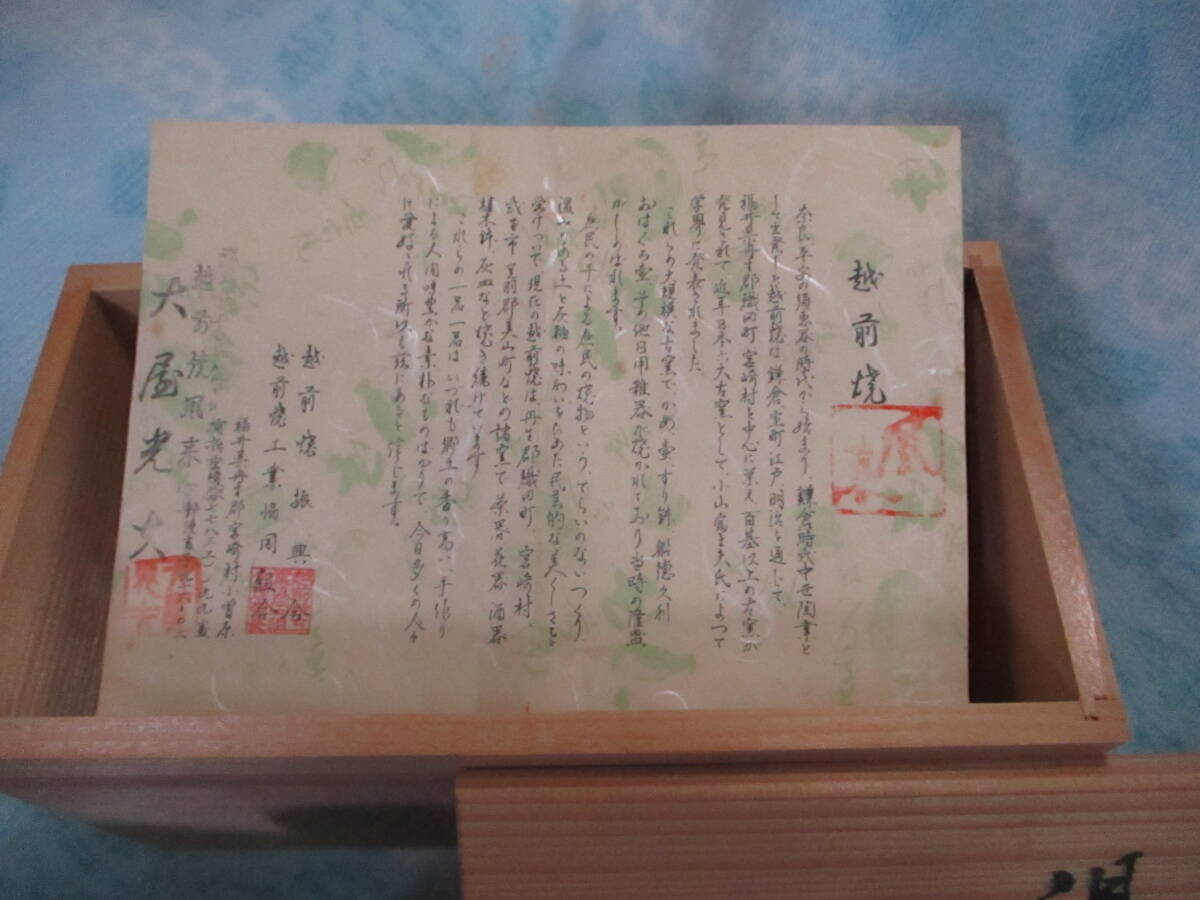 越前焼
奈良平安の須恵器の時代から始まり、鎌倉時代中世陶業と
して発足した越前焼は鎌倉、室町、江戸、明治を通して、
福井県丹生郡織田町、宮崎村を中心に栄え、百基以上の古窯が
発見されて近年日本六大古窯として、小山冨士夫氏によって
学界に発表されました。
これらの大規模な古窯で、かめ、壷、すり鉢、船徳久利
おはぐろ壷、その他日用雑器が焼かれており当時の隆盛
がしのばれます。
庶民の手による庶民の焼物という、てらいのないつくり、
温かみのある土と灰釉の味わいをひめた民芸的な美しさを
受けついで、現在の越前焼は、丹生郡織田町、宮崎村、
武生市、足羽郡美山町などの諸窯で、茶器、花器、酒器
植木鉢、灰皿などを焼き続けています
これらの一品一品は、いづれも郷土の香り高い手作り
による人間味豊かな素朴なものばかりで、今日多くの人々
に愛好される所以も茲にあると信じます。
越前焼振興会
越前焼工業協同組合
福井県丹生郡宮崎村小曽原
越前焼
大屋光大